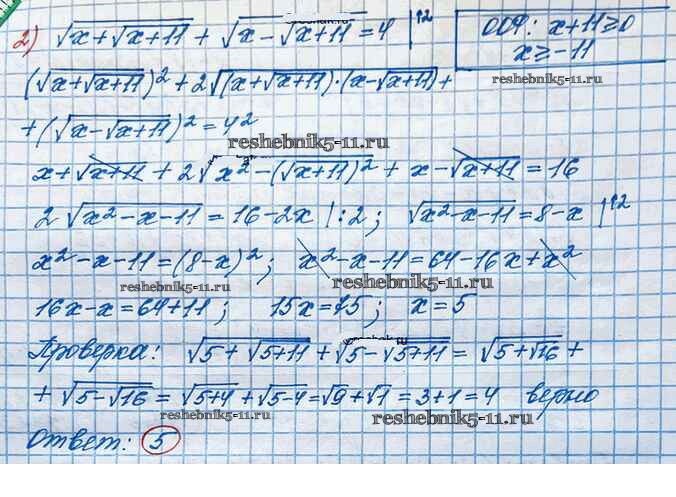 2) √(x+√(x+11)) + √(x-√(x+11)) = 4 |↑2
ООУ: x+11≥0
x≥-11
reshebnik5-11.ru
(√(x+√(x+11)))² + 2√((x+√(x+11))·(x-√(x+11))) +
+ (√(x-√(x+11)))² = 4²
reshebnik5-11.ru
x+√(x+11) + 2√(x²-(√(x+11))²) + x-√(x+11) = 16
2√(x²-x-11) = 16-2x |:2; √(x²-x-11) = 8-x |↑2
x²-x-11=(8-x)²; x²-x-11=64-16x+x²
reshebnik5-11.ru reshebnik5-11.ru
16x-x=64+11; 15x=75; x=5
Проверка: √(5+√(5+11)) + √(5-√(5+11)) = √(5+√16) +
+ √(5-√16) = √(5+4) + √(5-4) = √9+√1 = 3+1 = 4 верно
reshebnik5-11.ru
Ответ: 5
reshebnik5-11.ru